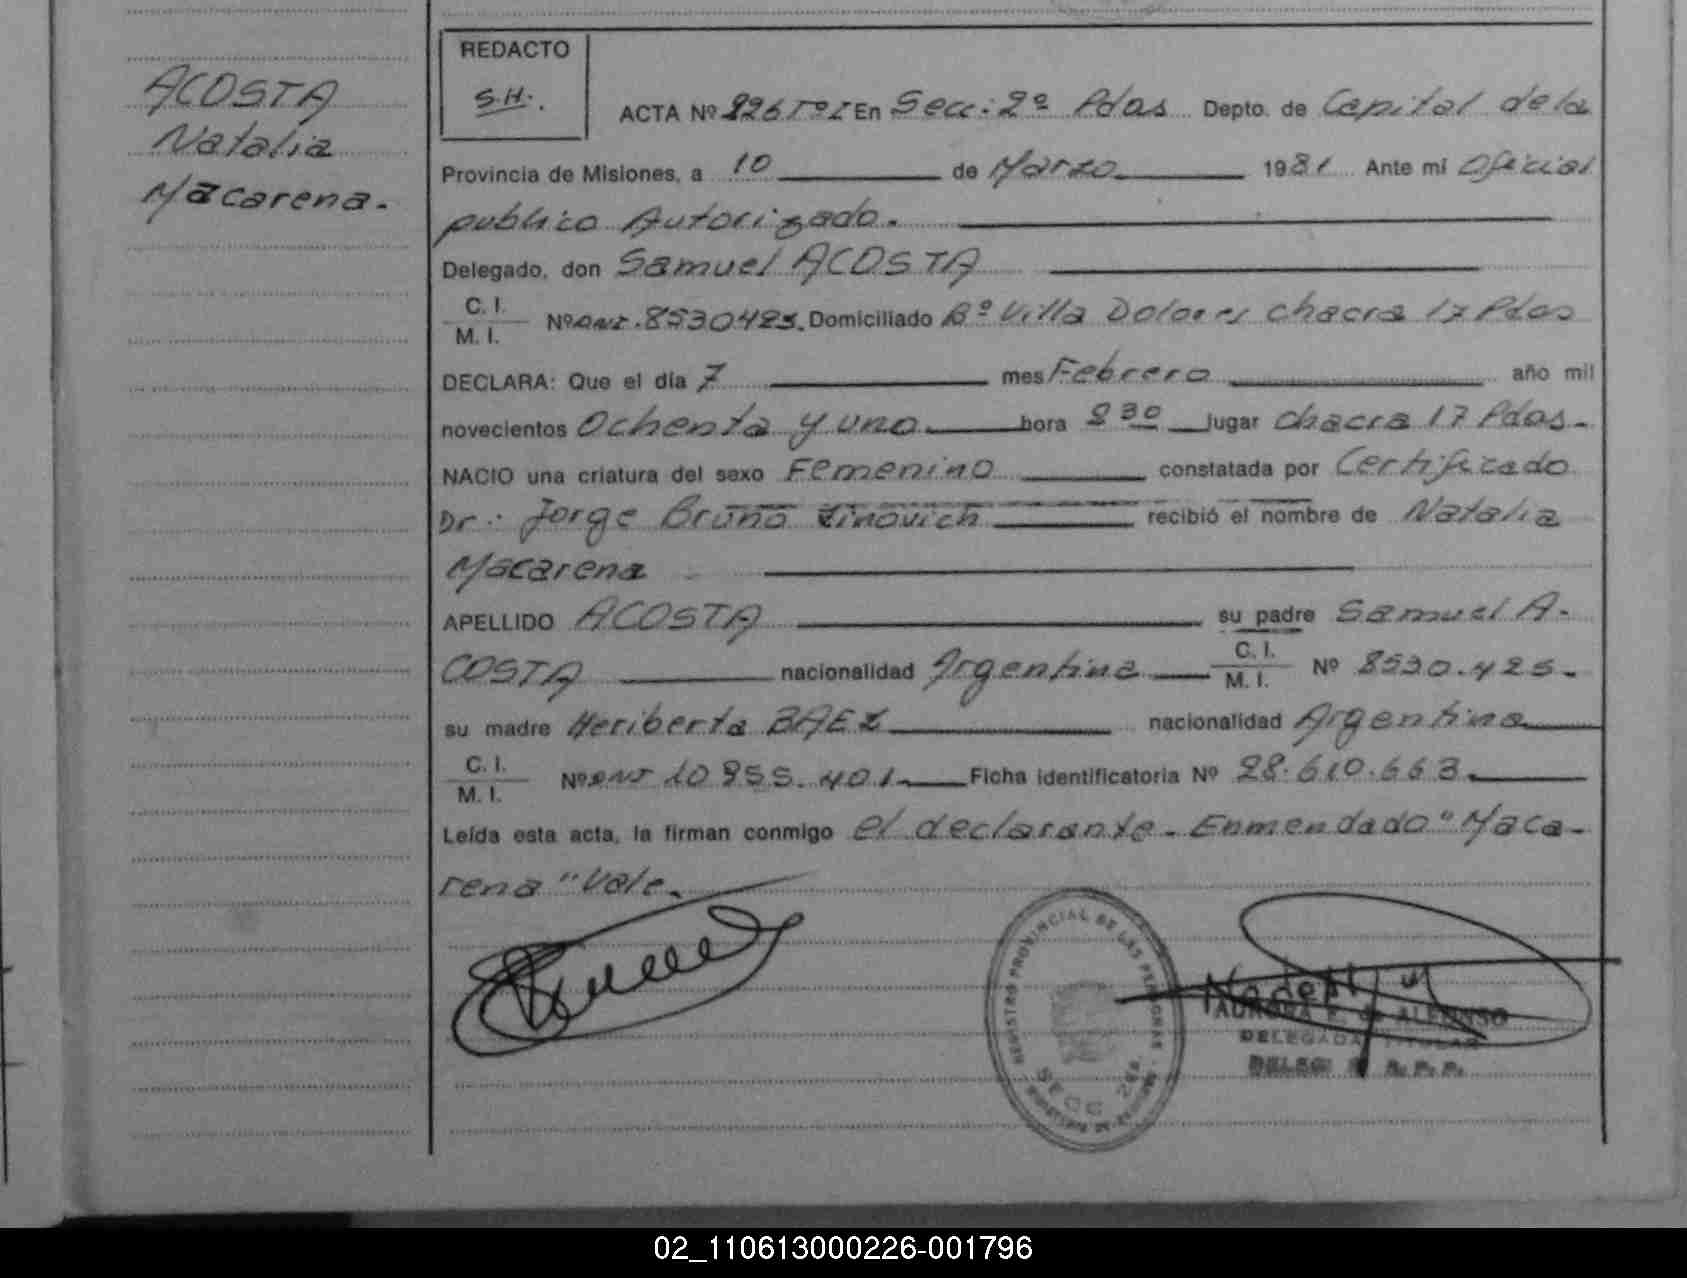 ACOSTA
Natalia
Macarena.-
REDACTO
S.H.
ACTA Nº 226 TºI En Secc: 2º Pdas Depto. de Capital de la
Provincia de Misiones, a 10 de Marzo 1981 Ante mi Oficial
publico Autorizado.
Delegado, don Samuel ACOSTA
C. I.
M. I. Nº DNI. 8530425. Domiciliado Bº Villa Dolores chacra 17 Pdas
DECLARA: Que el día 7 mes Febrero año mil
novecientos Ochenta y uno hora 2 30 lugar chacra 17 Pdas.
NACIO una criatura del sexo Femenino constatada por Certificado
Dr.: Jorge Bruno Zinovich recibió el nombre de Natalia
Macarena
APELLIDO ACOSTA su padre Samuel A-
COSTA nacionalidad Argentina C. I. M. I. Nº 8530.425.
su madre Heriberta BAEZ nacionalidad Argentina
C. I.
M. I. Nº DNI 10 955.401. Ficha identificatoria Nº 28.610.663.
Leída esta acta, la firman conmigo el declarante. Enmendado "Maca-
rena" Vale.
REGISTRO PROVINCIAL DE LAS PERSONAS
SECC. 2da.
AURORA F. de ALFONSO
DELEGADA TITULAR
02_110613000226-001796